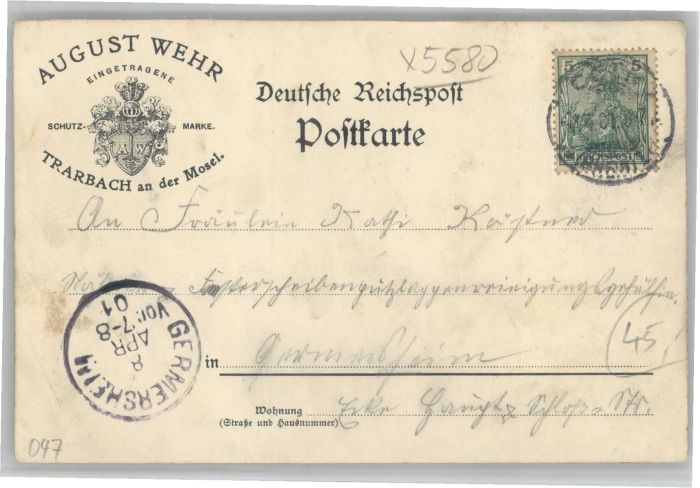 AUGUST WEHR
EINGETRAGENE
SCHUTZ- MARKE.
A W
TRARBACH an der Mosel.
x5580
Deutsche Reichspost
Postkarte
5 5
REICHSPOST
An Fräulein Kathi Kästner
Fensterscheibenputzlappenreinigungsgehilfin
GERMERSHEIM
8
APR
Vor. 7-8
01
in Germersheim
45,
Wohnung Ecke Haupt & Schloß-Str.
(Straße und Hausnummer)
047